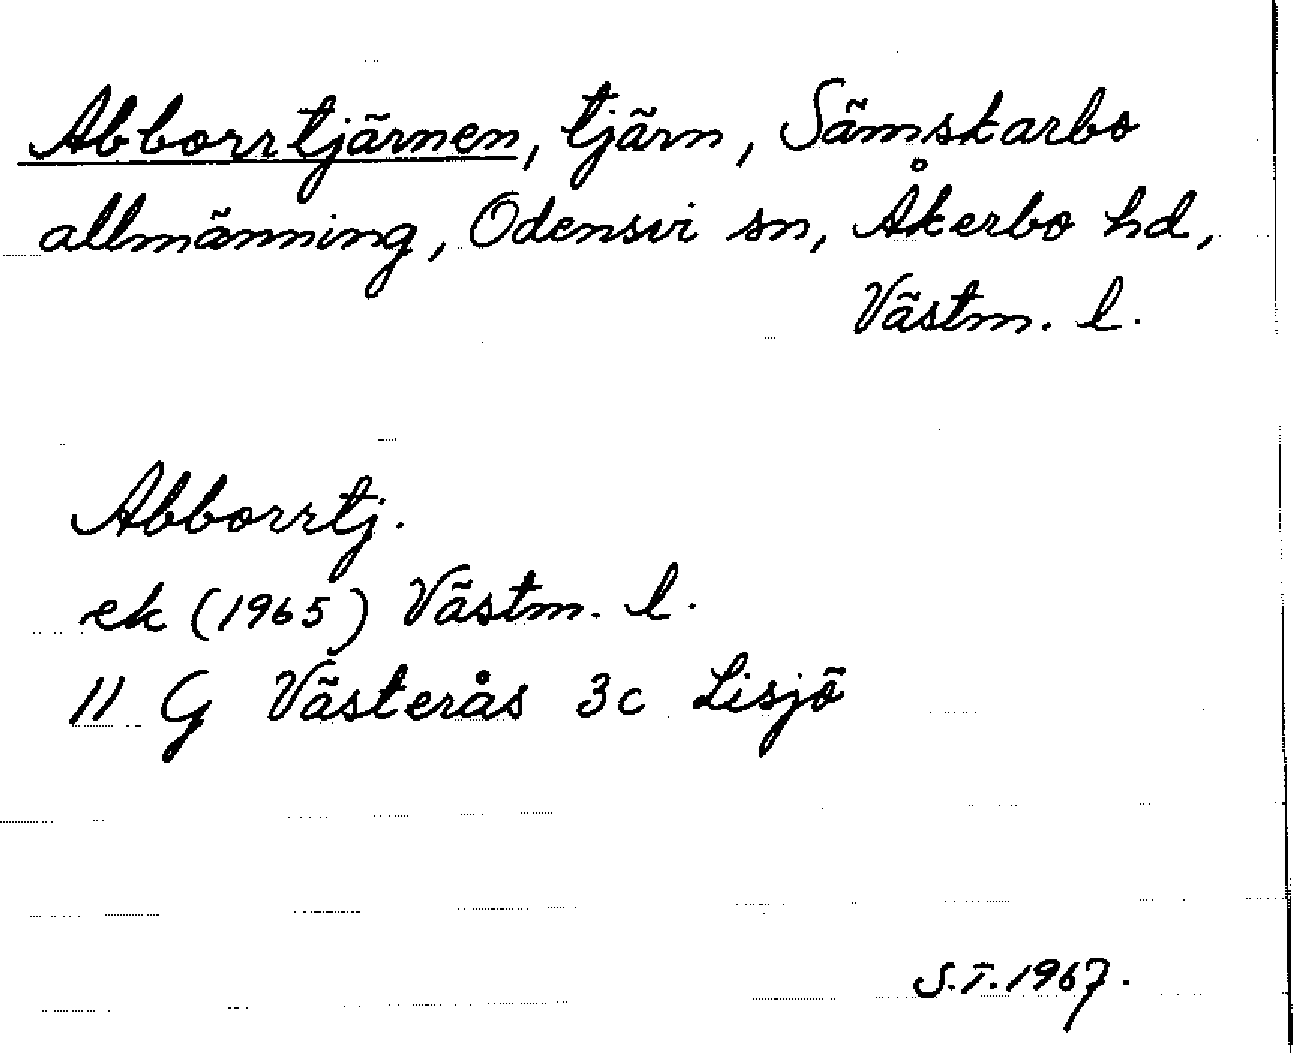 Abborrtjärnen, tjärn, Sämskarbo
allmänning, Odensvi sn, Åkerbo hd,
Västm. l.
Abborrtj.
ek (1965) Västm. l.
11 G Västerås 3c Lisjö
S.T. 1967.